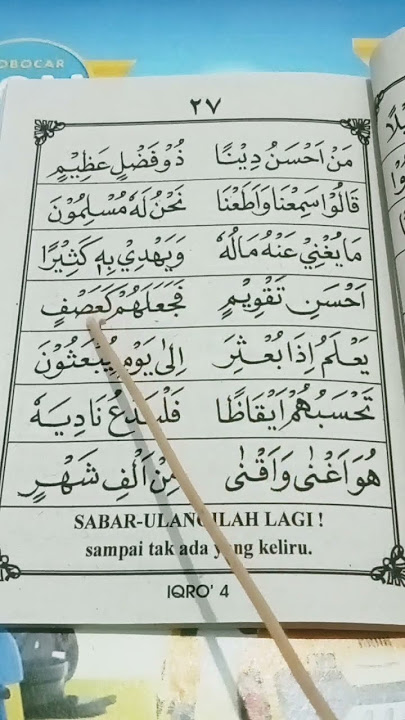 OBOCAR
٢٧
مَنْ اَحْسَنُ دِيْنًا ذُوْ فَضْلٍ عَظِيْمٍ
قَالُوْا سَمِعْنَا وَاَطَعْنَا نَحْنُ لَهٗ مُسْلِمُوْنَ
مَا يُغْنِيْ عَنْهُ مَالُهٗ وَيَهْدِيْ بِهٖ كَثِيْرًا
اَحْسَنِ تَقْوِيْمٍ فَجَعَلَهُمْ كَعَصْفٍ
يَعْلَمُ اِذَا بُعْثِرَ اِلٰى يَوْمِ يُبْعَثُوْنَ
تَحْسَبُهُمْ اَيْقَاظًا فَلْيَدْعُ نَادِيَهٗ
هُوَ اَغْنٰى وَاَقْنٰى مِنْ اَلْفِ شَهْرٍ
SABAR-ULANGILAH LAGI !
sampai tak ada yang keliru.
IQRO' 4